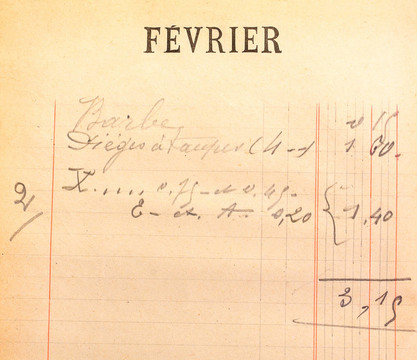 FÉVRIER
Barbe 0 15
Pièges à taupes (4 --) 1 60.
2/ X.... 0.75 - et 0.45 -
E - et. A - 0,20 { 1.40
3,15